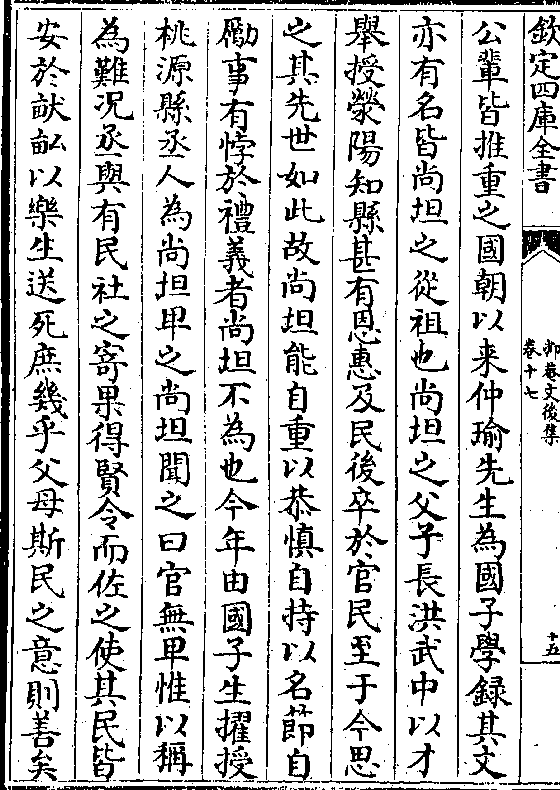 欽定四庫全書
抑菴文後集
卷十七
十五
公輩皆推重之國朝以来仲瑜先生為國子學録其文
亦有名皆尚坦之從祖也尚坦之父子長洪武中以才
舉授滎陽知縣甚有恩惠及民後卒於官民至于今思
之其先世如此故尚坦能自重以恭慎自持以名節自
勵事有悖於禮義者尚坦不為也今年由國子生擢授
桃源縣丞人為尚坦卑之尚坦聞之曰官無卑惟以稱
為難况丞與有民社之寄果得賢令而佐之使其民皆
安於畎畝以樂生送死庶幾乎父母斯民之意則善矣